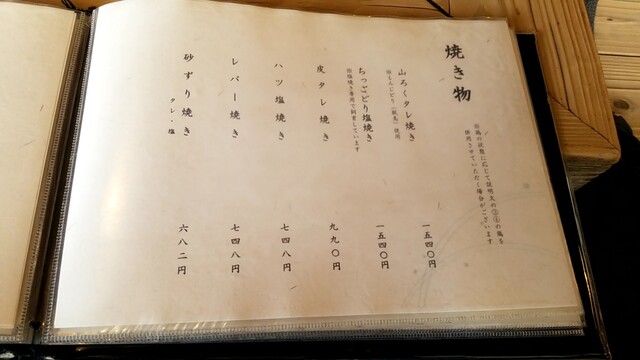 焼き物
鶏の状態に応じて説明文の
の鶏を
使用させていただく場合がございます
山ろくタレ焼き
使用
一五四〇円
ちっごどり塩焼き
塩焼き専用で飼育しています
一五四〇円
皮タレ焼き
九九〇円
ハツ塩焼き
七四八円
レバー焼き
七四八円
砂ずり焼き
タレ・塩
六八二円